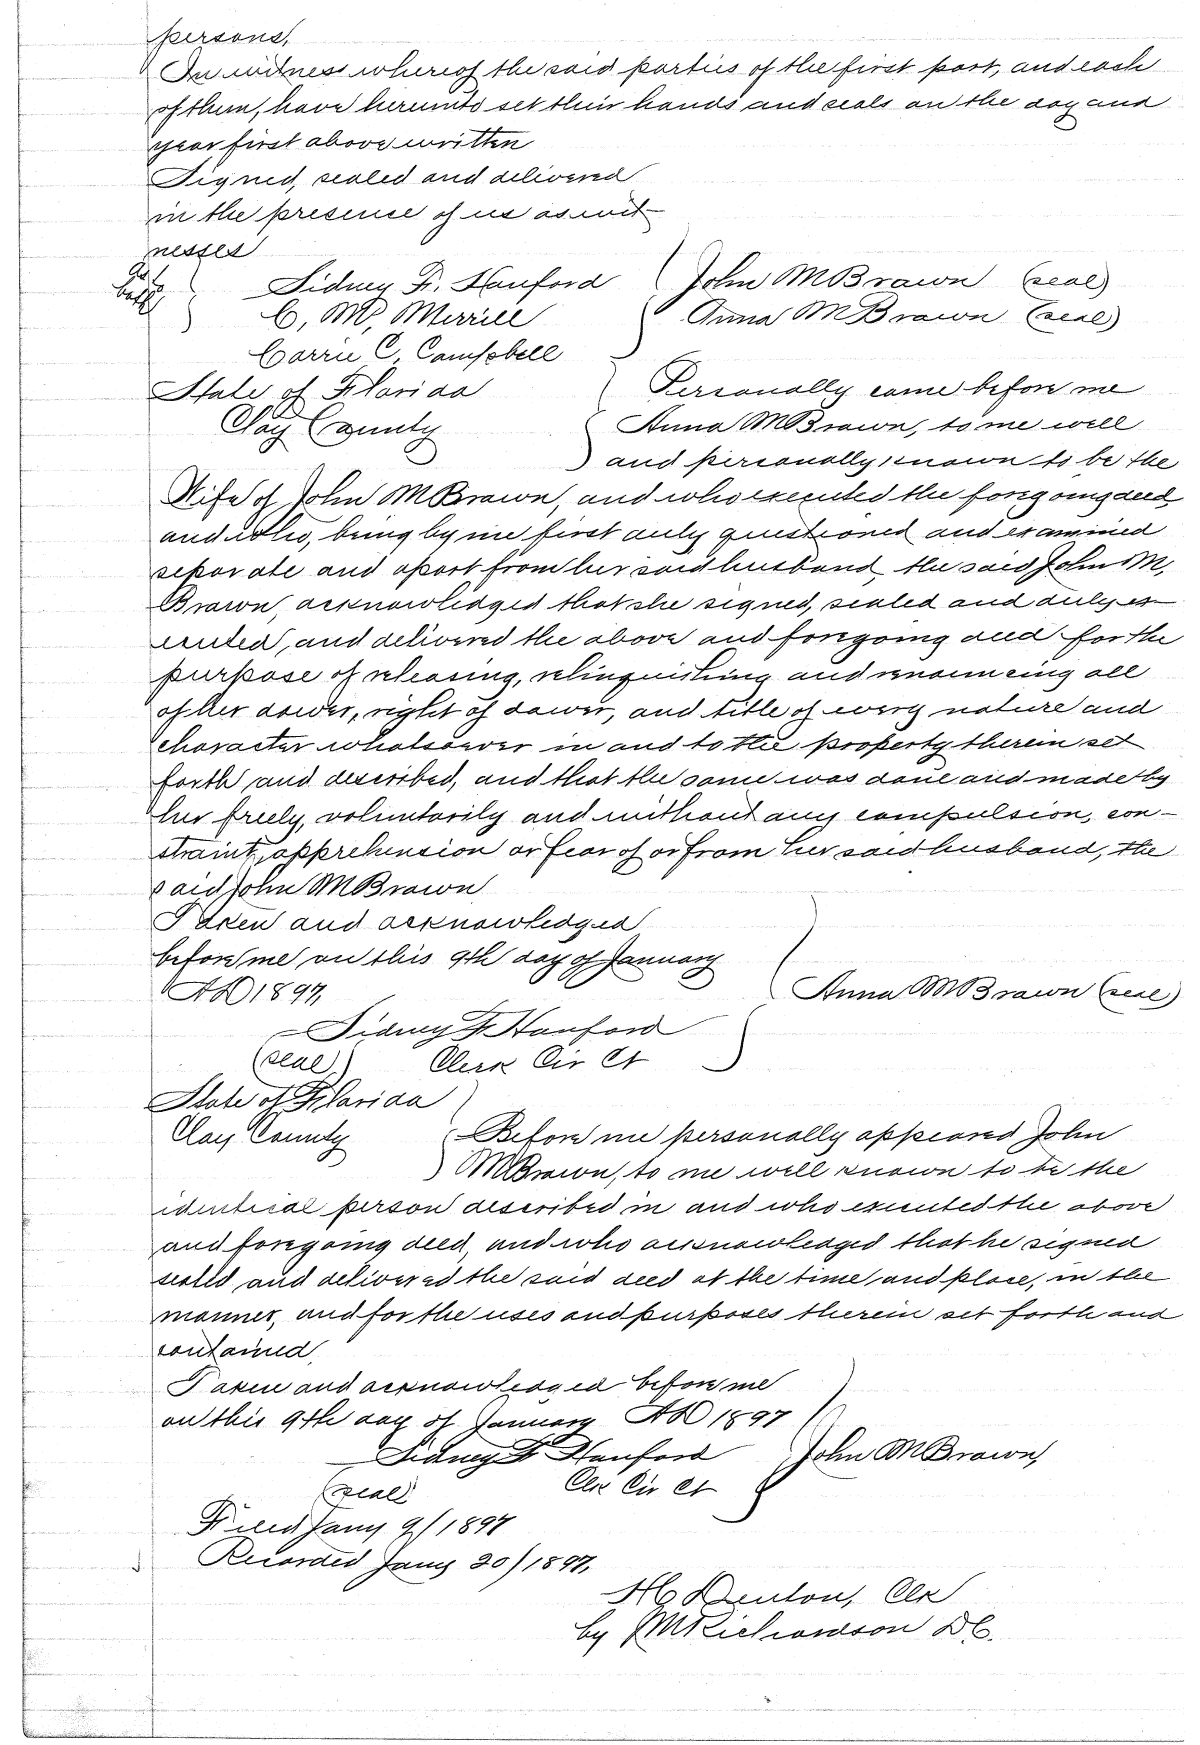 persons,
In witness whereof the said parties of the first part, and each
of them, have hereunto set their hands and seals on the day and
year first above written
Signed, sealed and delivered
in the presence of us as wit-
nesses
Sidney F. Hanford John M Brown (seal)
C, M, Merrill Anna M Brown (seal)
Carrie C, Campbell
State of Florida Personally came before me
Clay County Anna M Brown, to me well
and personally known to be the
Wife of John M Brown, and who executed the foregoing deed
and who, being by me first duly questioned and examined
separate and apart from her said husband, the said John M,
Brown, acknowledged that she signed, sealed and duly ex-
ecuted, and delivered the above and foregoing deed for the
purpose of releasing, relinquishing and renouncing all
of her dower, right of dower, and title of every nature and
character whatsoever in and to the property therein set
forth and described, and that the same was done and made by
her freely, voluntarily and without any compulsion, con-
straint, apprehension or fear of or from her said husband, the
said John M Brown
Taken and acknowledged
before me on this 9th day of January
AD 1897, Anna M Brown (seal)
Sidney F Hanford
(seal) Clerk Cir Ct
State of Florida
Clay County Before me personally appeared John
M Brown, to me well known to be the
identical person described in and who executed the above
and foregoing deed, and who acknowledged that he signed
sealed and delivered the said deed at the time and place, in the
manner, and for the uses and purposes therein set forth and
contained,
Taken and acknowledged before me
on this 9th day of January AD 1897
Sidney F Hanford John M Brown,
(seal) Clk Cir Ct
Filed Jany 9/1897
Recorded Jany 20/1897,
Denton, Clk
by Richardson DC.